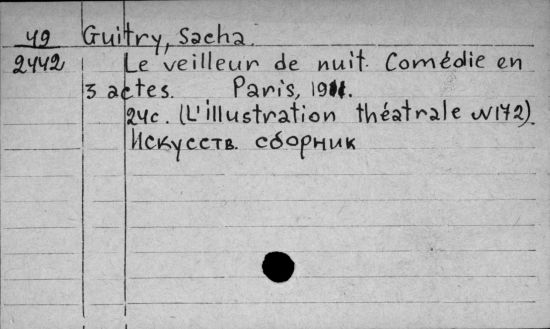 49 Guitry, Sacha.
2442 Le veilleur de nuit. Comédie en
3 actes. Paris, 1911.
24с. (L'illustration théatrale N172).
Искусств. сборник